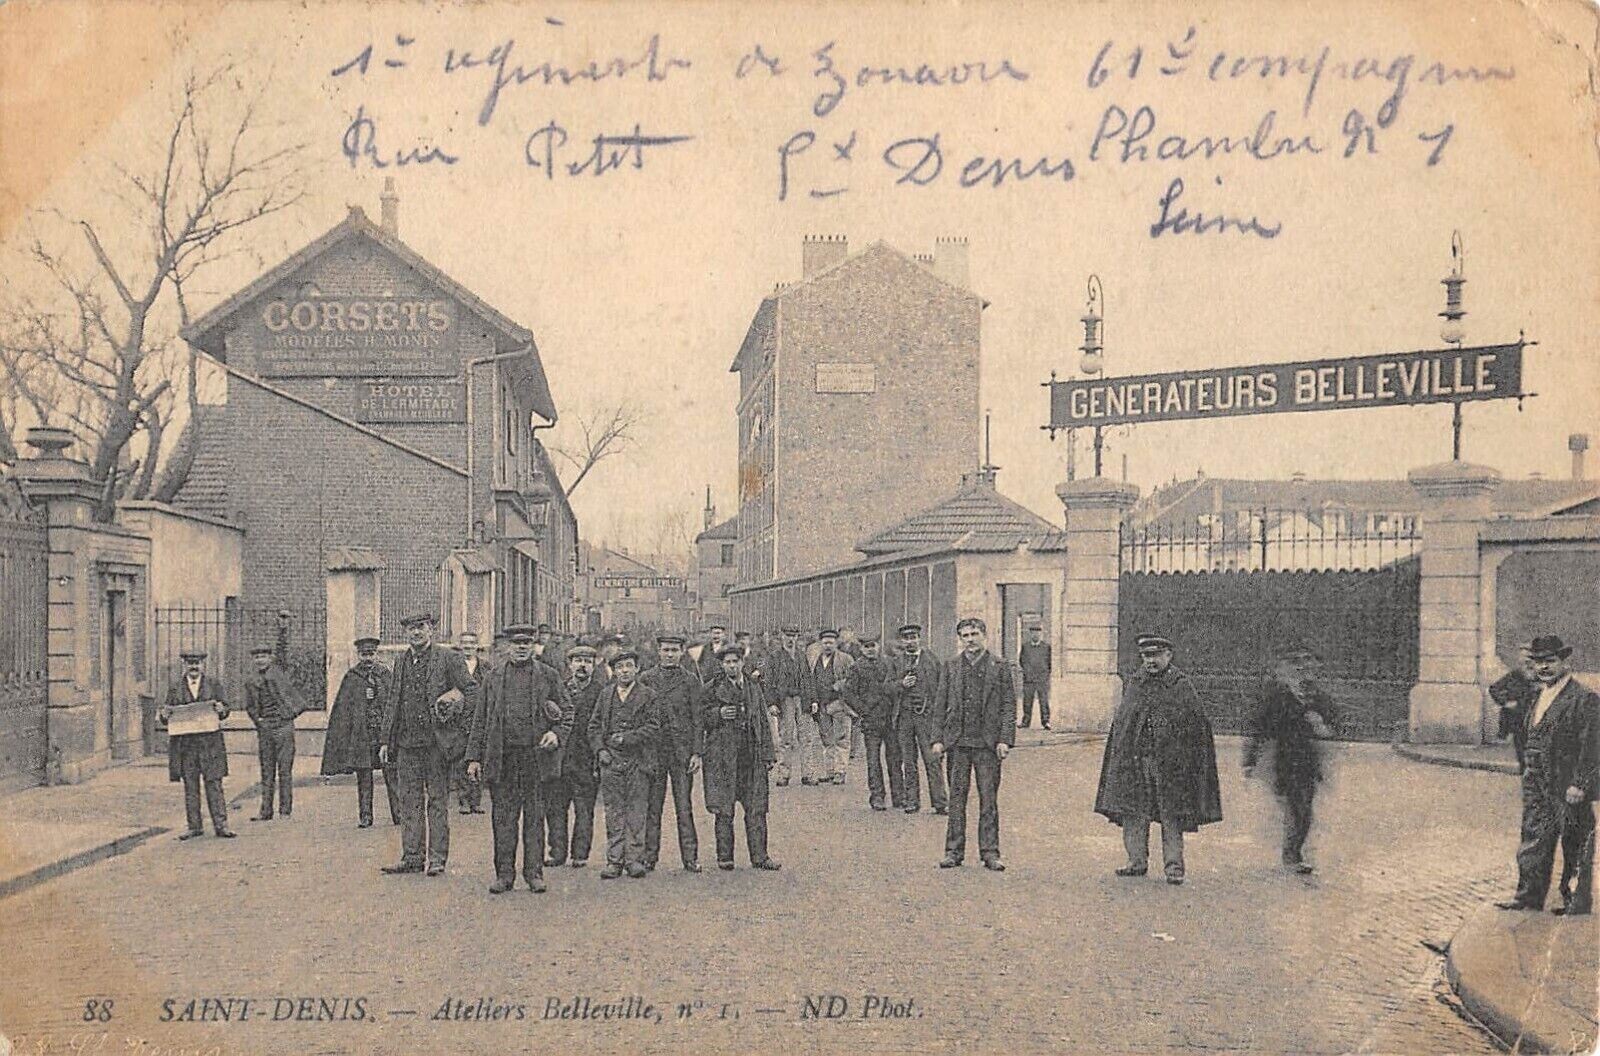 1er régiment de Zouave 61e compagnie
Rue Petit St Denis Chambre N 1
Seine
CORSETS
MODÈLES H. MONIN
HOTEL
DE L'ERMITAGE
GENERATEURS BELLEVILLE
GENERATEURS BELLEVILLE
88 SAINT-DENIS. — Ateliers Belleville, n° 1. — ND Phot.